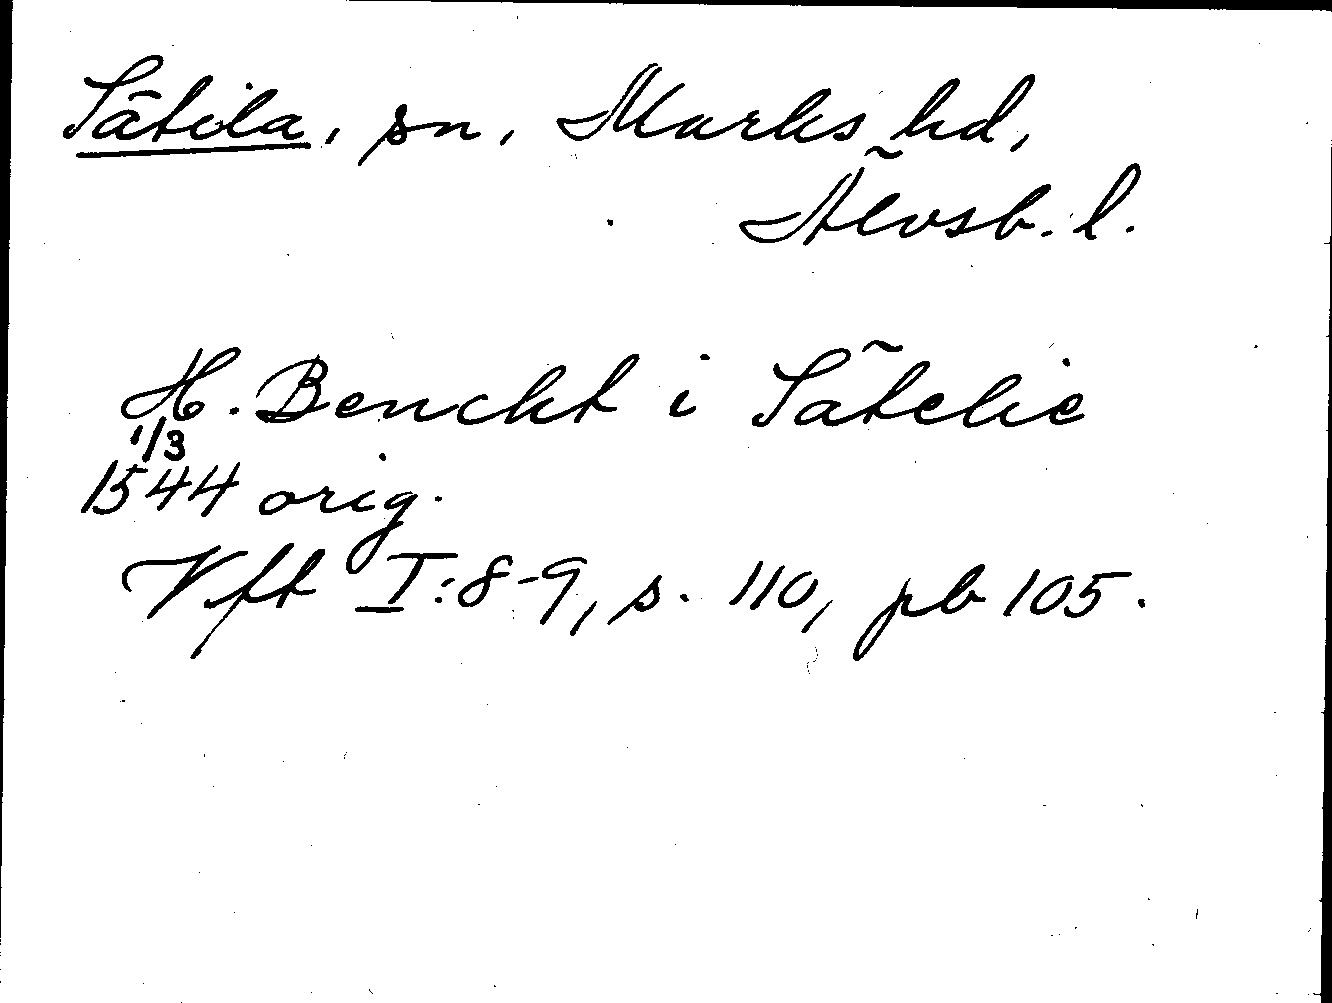 Sätila, sn, Marks hd,
Älvsb. l.
H. Benckt i Sätelie
1/3
1544 orig.
Vft I:8-9, s. 110, pb 105.